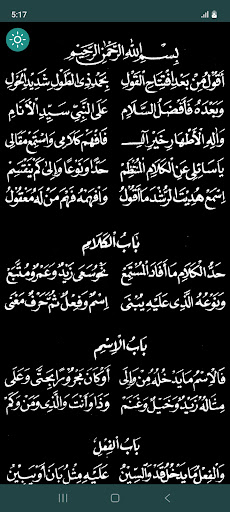 5:17
بِسْمِ اللهِ الرَّحْمٰنِ الرَّحِيْمِ
أَقُولُ مِنْ بَعْدِ افْتِتَاحِ الْقَوْلِ بِحَمْدِ ذِي الطَّوْلِ شَدِيْدِ الْحَوْلِ
وَبَعْدَهُ فَأَفْضَلُ السَّلَامِ عَلَى النَّبِيِّ سَيِّدِ الْأَنَامِ
وَآلِهِ الْأَطْهَارِ خَيْرِ آلِ فَافْهَمْ كَلَامِي وَاسْتَمِعْ مَقَالِي
يَا سَائِلِي عَنِ الْكَلَامِ الْمُنْتَظِمْ حَدًّا وَنَوْعًا وَإِلَى كَمْ يَنْقَسِمْ
اسْمَعْ هُدِيْتَ الرُّشْدَ مَا أَقُولُ وَافْهَمْهُ فَهْمَ مَنْ لَهُ مَعْقُولُ
بَابُ الْكَلَامِ
حَدُّ الْكَلَامِ مَا أَفَادَ الْمُسْتَمِعْ نَحْوُ سَعَى زَيْدٌ وَعَمْرٌو مُتَّبِعْ
وَنَوْعُهُ الَّذِي عَلَيْهِ يُبْنَى اِسْمٌ وَفِعْلٌ ثُمَّ حَرْفُ مَعْنَى
بَابُ الْاِسْمِ
فَالْاِسْمُ مَا يَدْخُلُهُ مِنْ وَإِلَى أَوْ كَانَ مَجْرُورًا بِحَتَّى وَعَلَى
مِثَالُهُ زَيْدٌ وَخَيْلٌ وَغَنَمْ وَذَا وَأَنْتَ وَالَّذِي وَمَنْ وَكَمْ
بَابُ الْفِعْلِ
وَالْفِعْلُ مَا يَدْخُلُ قَدْ وَالسِّيْنُ عَلَيْهِ مِثْلُ بَانَ أَوْ يَبِيْنُ